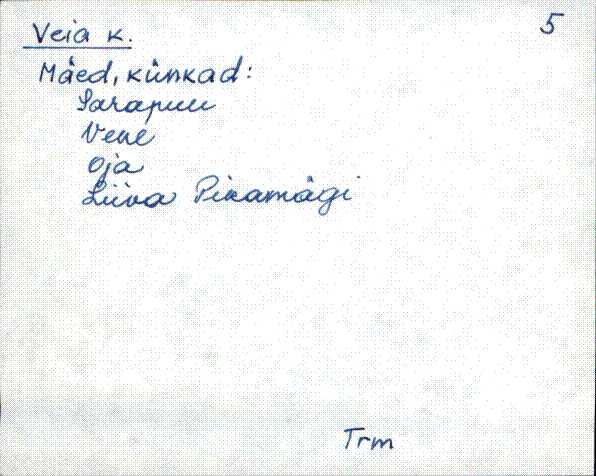 Veia k.
5
Mäed, künkad:
Sarapuu
Vene
Oja
Liiva Pikamägi
Trm